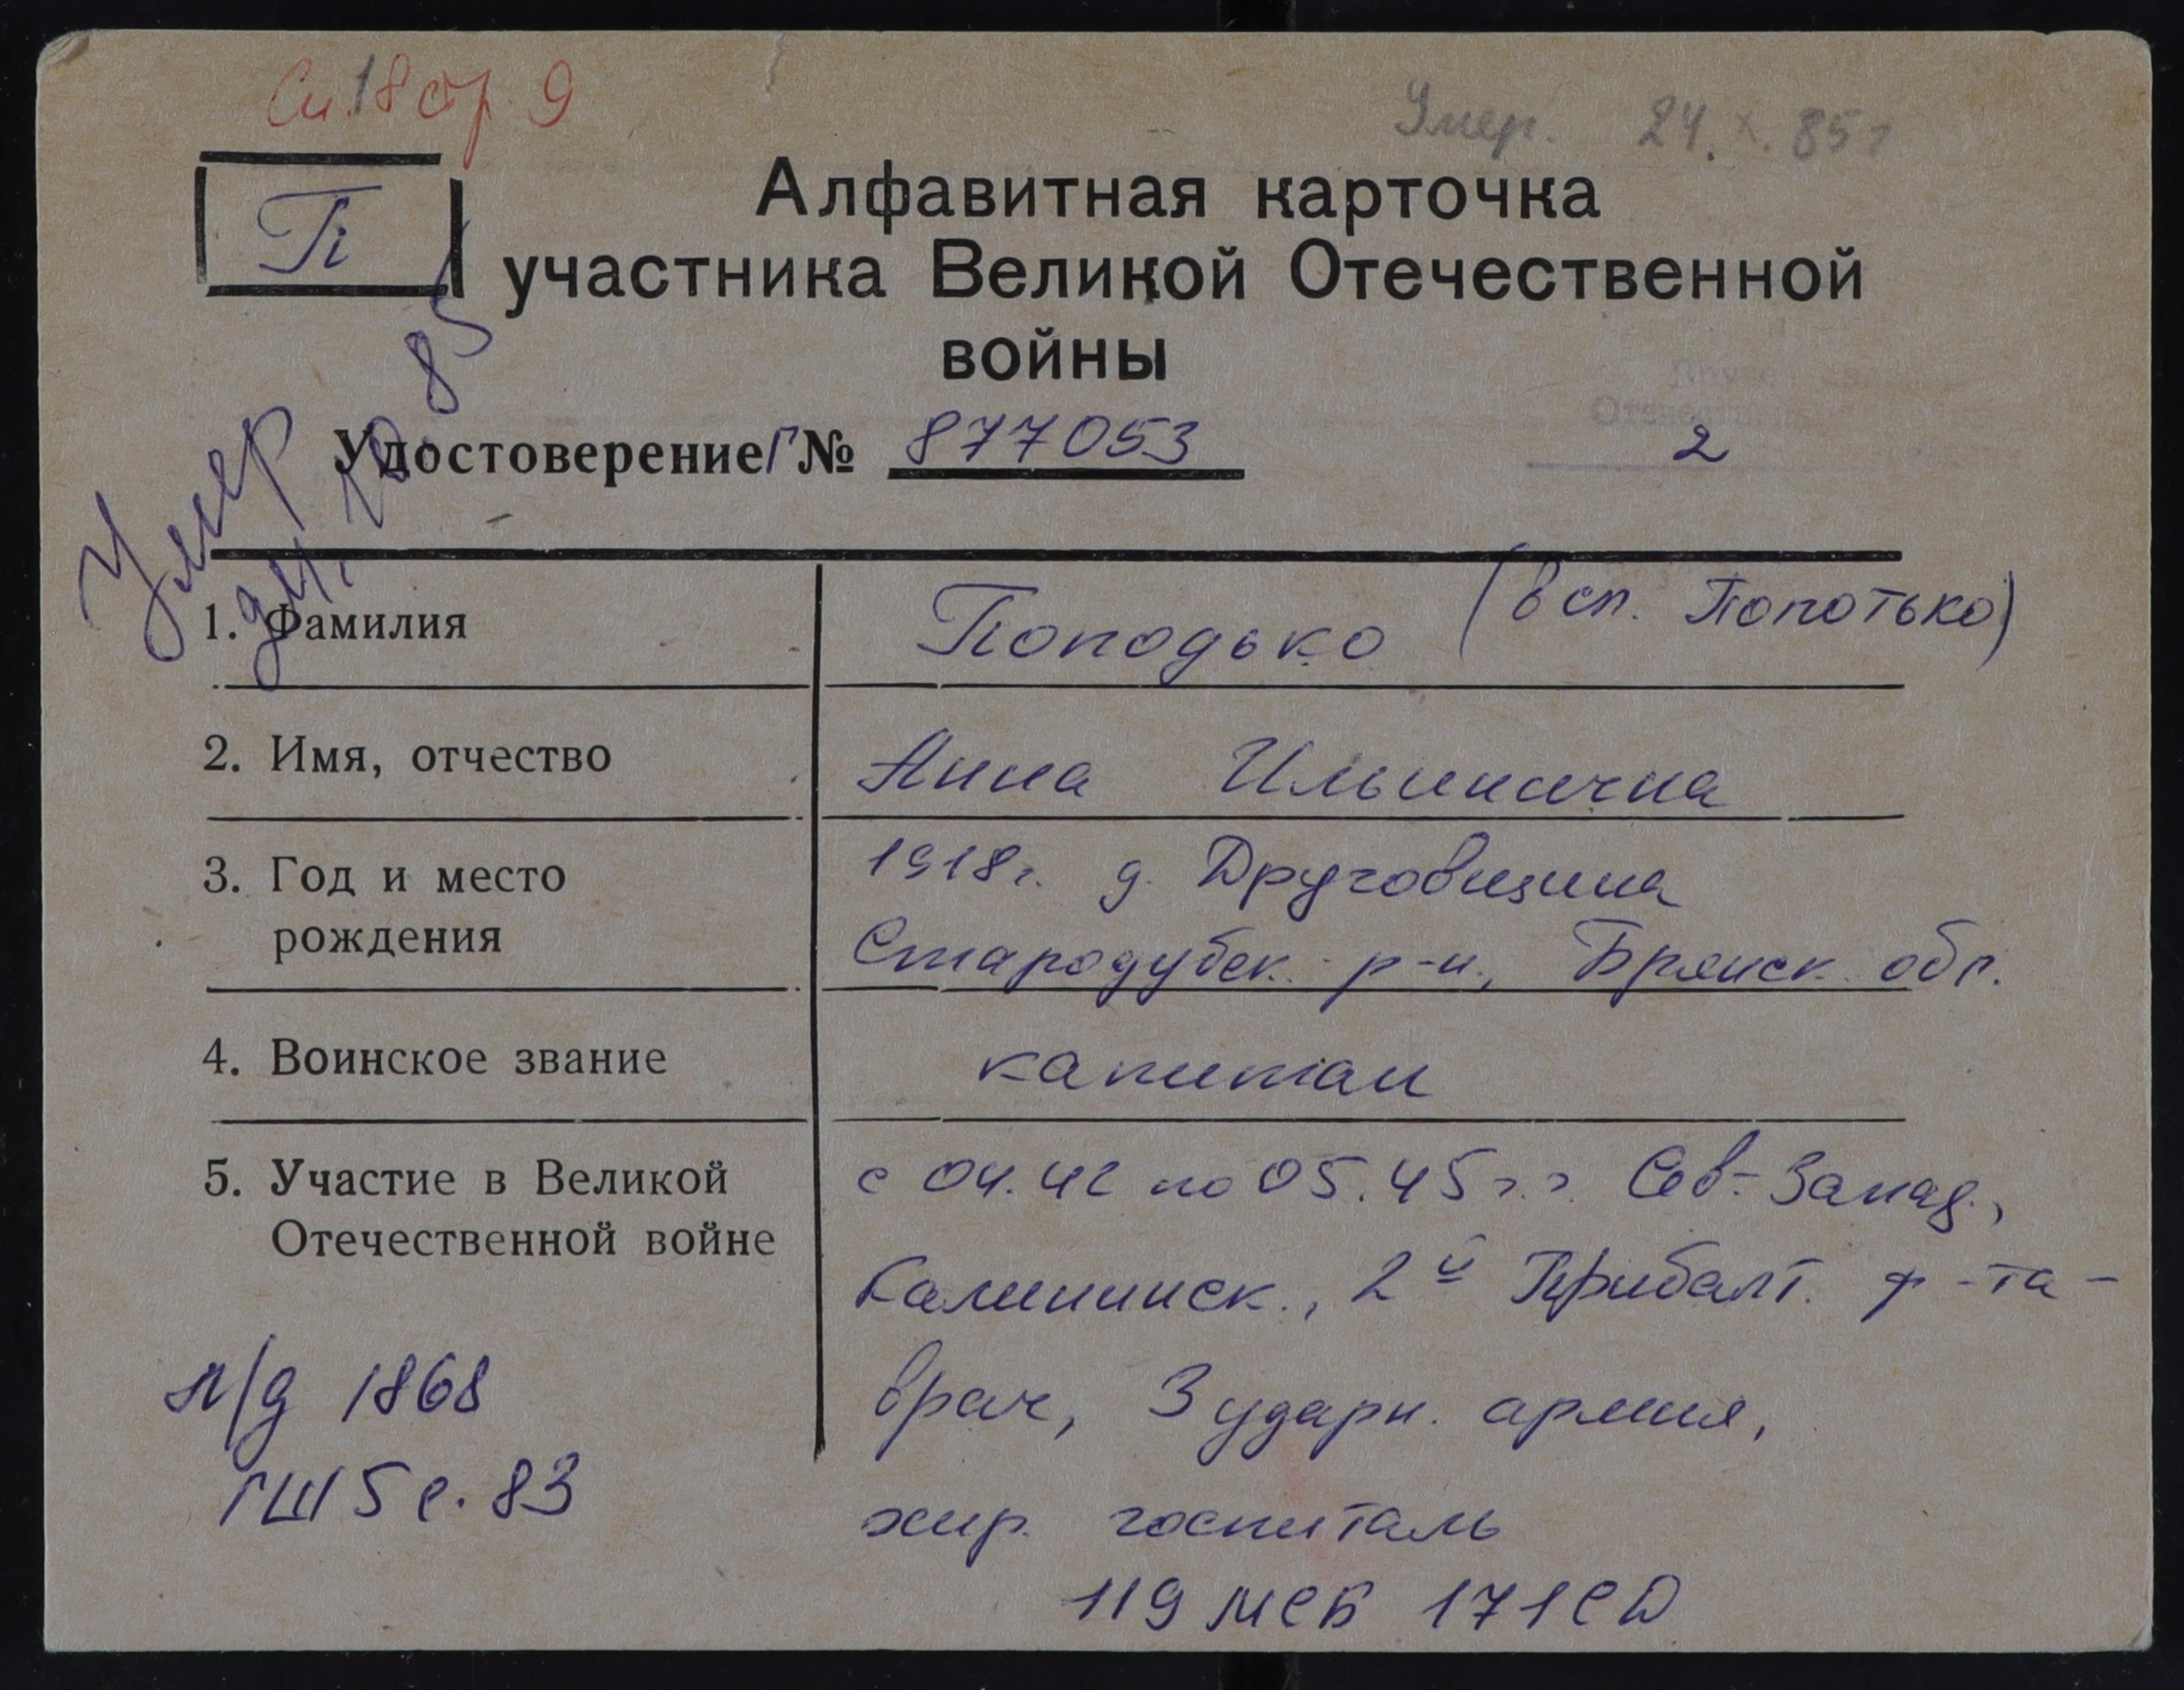 Сп. 18 стр. 9
Умер. 24.X.85г
П
Алфавитная карточка
участника Великой Отечественной
войны
Умер
24.10.85
Удостоверение Г № 877053
2
1. Фамилия
Поподько (в сп. Попотько)
2. Имя, отчество
Анна Ильинична
3. Год и место
рождения
1918г. д. Друговщина
Стародубск. р-н, Брянск. обл.
4. Воинское звание
капитан
5. Участие в Великой
Отечественной войне
с 04.42 по 05.45 г.г. Сев.-Запад.,
Калининск., 2й Прибалт. ф-та-
врач, 3 ударн. армия,
хир. госпиталь
119 МСБ 171 СД
л/д 1868
ГШ 5 с. 83